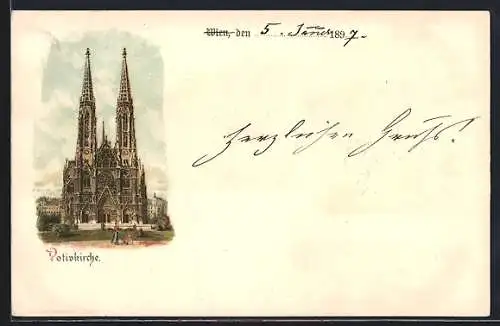 Wien, den 5. Jänner 1897.
Herzlichen Gruß!
Votivkirche.